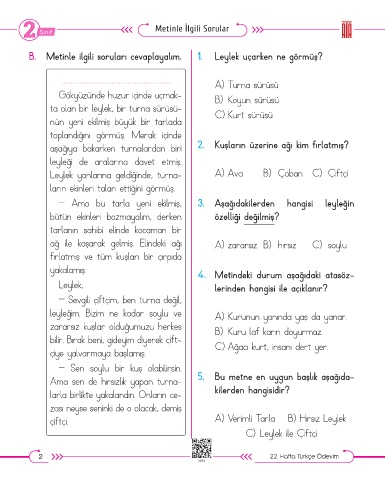 2. Sınıf
Metinle İlgili Sorular
B. Metinle ilgili soruları cevaplayalım.
Gökyüzünde huzur içinde uçmak-
ta olan bir leylek, bir turna sürüsü-
nün yeni ekilmiş büyük bir tarlada
toplandığını görmüş. Merak içinde
aşağıya bakarken turnalardan biri
leyleği de aralarına davet etmiş.
Leylek yanlarına geldiğinde, turna-
ların ekinleri talan ettiğini görmüş.
– Ama bu tarla yeni ekilmiş,
bütün ekinleri bozmayalım, derken
tarlanın sahibi elinde kocaman bir
ağ ile koşarak gelmiş. Elindeki ağı
fırlatmış ve tüm kuşları bir çırpıda
yakalamış.
Leylek,
– Sevgili çiftçim, ben turna değil,
leyleğim. Bizim ne kadar soylu ve
zararsız kuşlar olduğumuzu herkes
bilir. Bırak beni, gideyim diyerek çift-
çiye yalvarmaya başlamış.
– Sen soylu bir kuş olabilirsin.
Ama sen de hırsızlık yapan turna-
larla birlikte yakalandın. Onların ce-
zası neyse seninki de o olacak, demiş
çiftçi.
1. Leylek uçarken ne görmüş?
A) Turna sürüsü
B) Koyun sürüsü
C) Kurt sürüsü
2. Kuşların üzerine ağı kim fırlatmış?
A) Avcı B) Çoban C) Çiftçi
3. Aşağıdakilerden hangisi leyleğin
özelliği değilmiş?
A) zararsız B) hırsız C) soylu
4. Metindeki durum aşağıdaki atasöz-
lerinden hangisi ile açıklanır?
A) Kurunun yanında yaş da yanar.
B) Kuru laf karın doyurmaz.
C) Ağacı kurt, insanı dert yer.
5. Bu metne en uygun başlık aşağıda-
kilerden hangisidir?
A) Verimli Tarla B) Hırsız Leylek
C) Leylek ile Çiftçi
2
22. Hafta Türkçe Ödevim